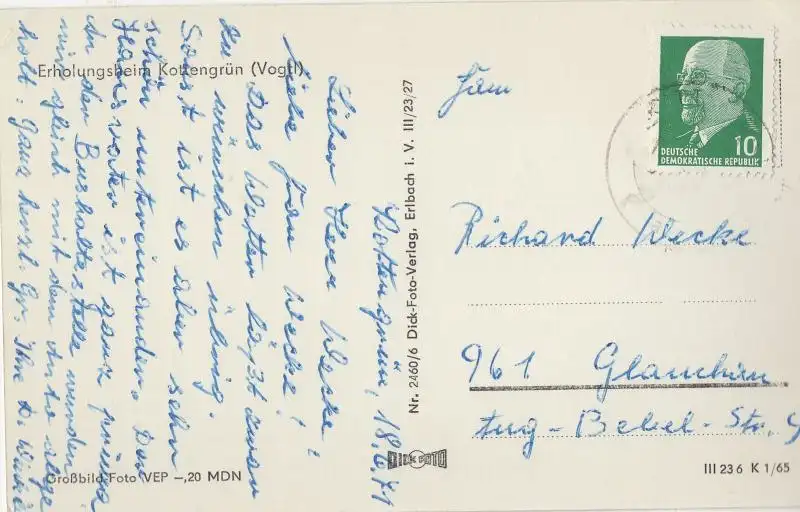 Erholungsheim Kottengrün (Vogtl)
Kottengrün, 18.6.71
Lieber Herr Wecke!
Liebe Frau Wecke!
Das Wetter läßt zwar
zu wünschen übrig.
Sonst ist es aber sehr
schön untereinander. Der
Heimvater ist ganz prima
An der Bushaltestelle wurden
wir gleich mit dem Auto abge
holt. Ganz herzl. Gr. Ihre
Großbild-Foto VEP –,20 MDN
Nr. 2460/6 Dick-Foto-Verlag, Erlbach i. V. III/23/27
DICK FOTO
10
DEUTSCHE
DEMOKRATISCHE REPUBLIK
Fam
Richard Wecke
961 Glauchau
Aug-Bebel-Str.
III 23 6 K 1/65